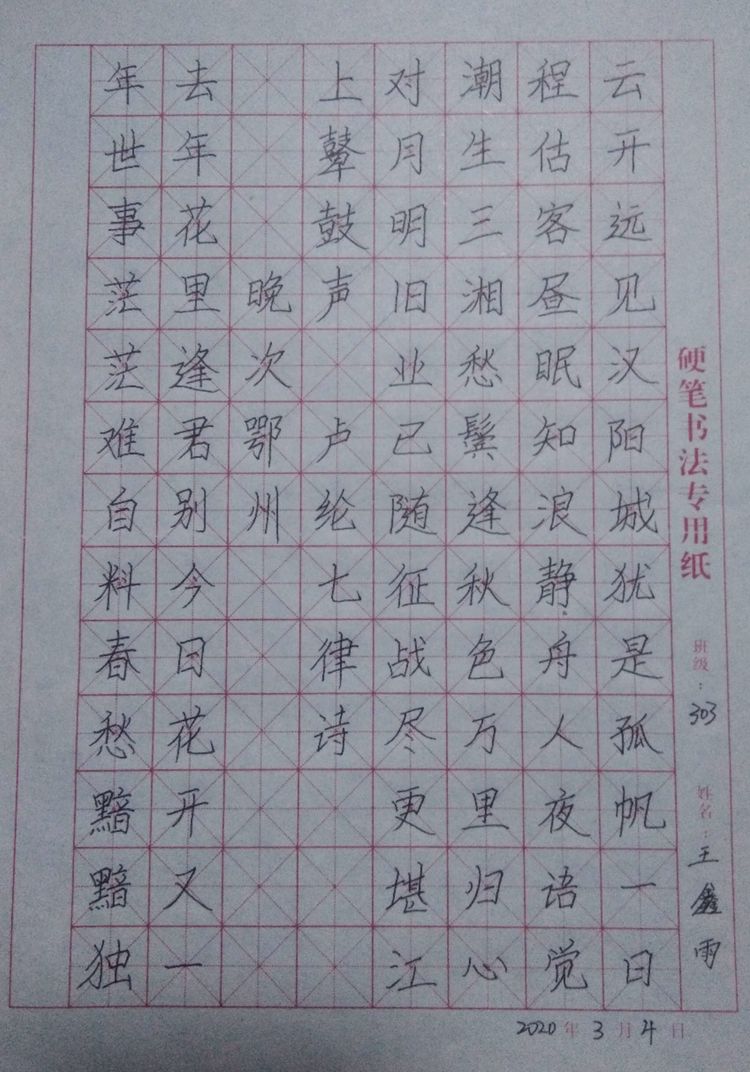 硬笔书法专用纸
班级：303 姓名：王鑫雨
云开远见汉阳城犹是孤帆一日
程估客昼眠知浪静舟人夜语觉
潮生三湘愁鬓逢秋色万里归心
对月明旧业已随征战尽更堪江
上鼙鼓声 卢纶七律诗
晚次鄂州
去年花里逢君别今日花开又一
年世事茫茫难自料春愁黯黯独
2020年3月4日